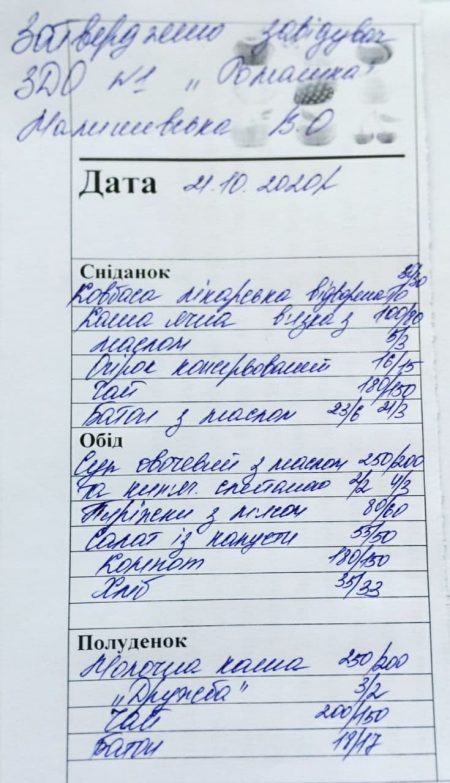 Затверджено завідувач
ЗДО №1 „Ромашка"
Малишевська В.О
Дата 21.10.2020р
Сніданок
Ковбаса лікарська відварена
Каша ячна в'язка з 100/80
маслом 5/3
Огірок консервований 16/15
Чай 180/150
Батон з маслом 23/6 21/3
Обід
Суп овочевий з маслом 250/200
та кип'яч. сметаною 2/2 4/3
Пиріжки з 80/60
Салат із капусти 55/50
Компот 180/150
Хліб 35/33
Полуденок
Молочна каша 250/200
„Дружба" 3/2
Чай 200/150
Батон 18/17